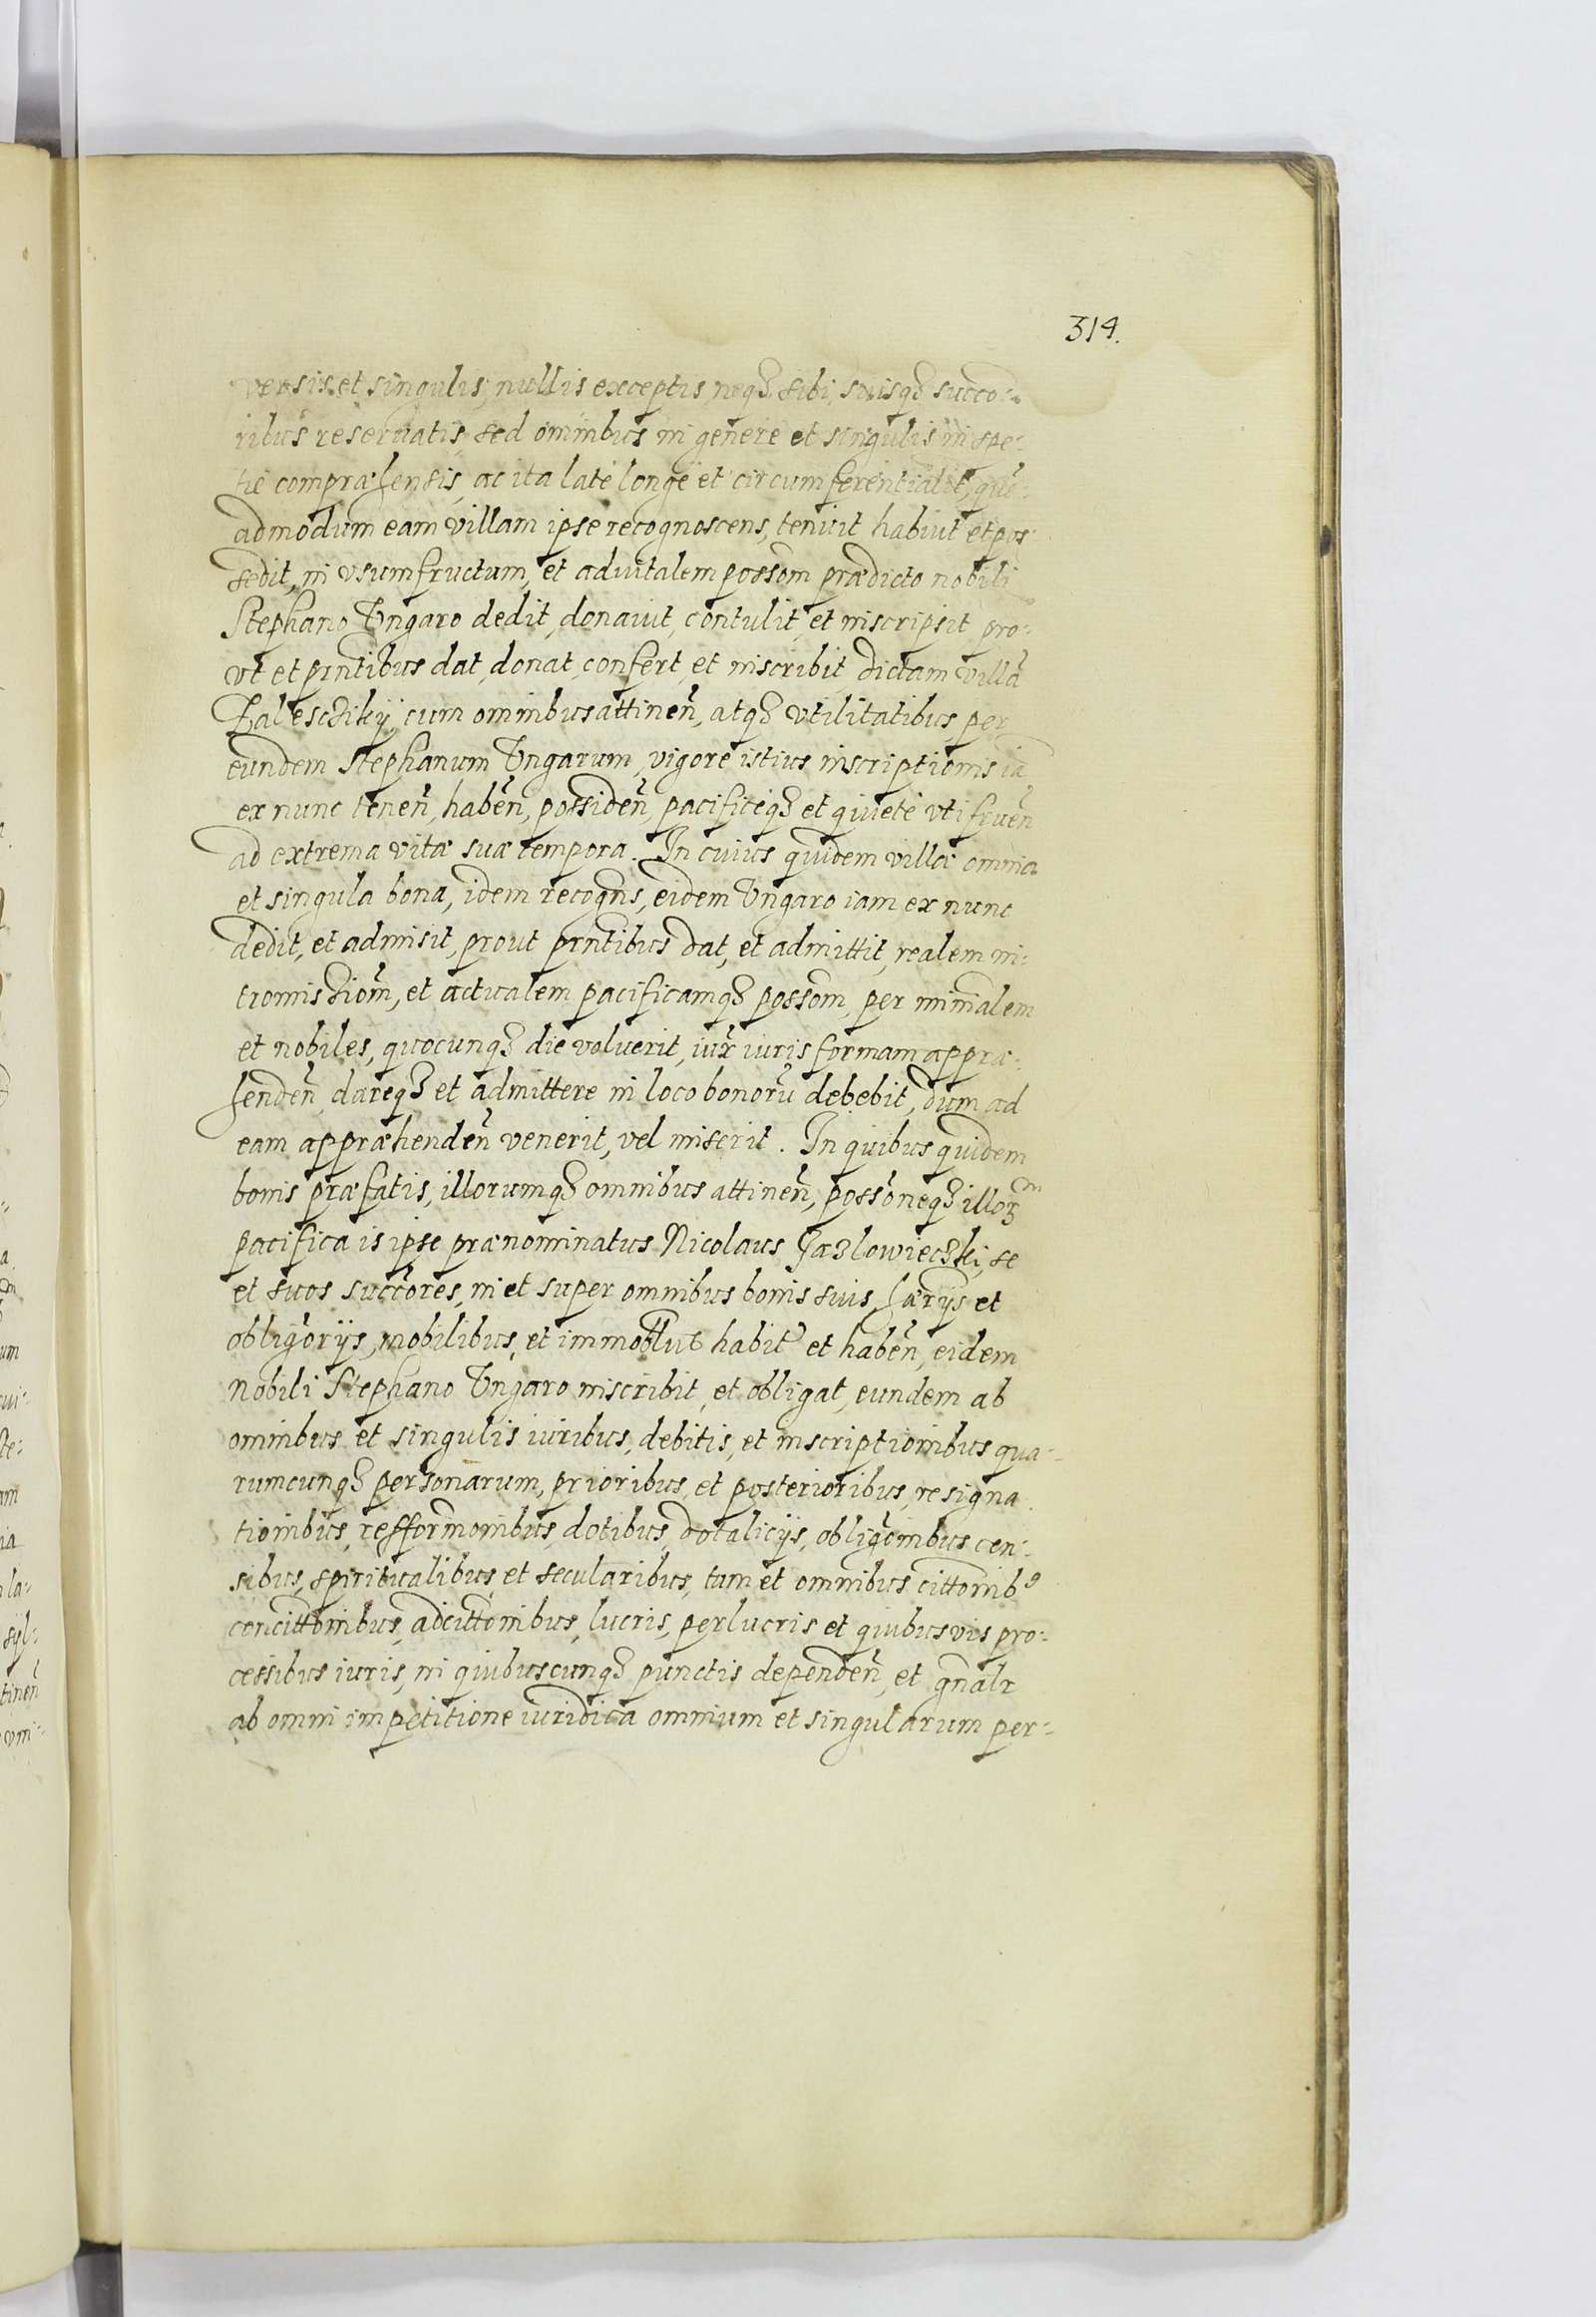 314.
versis et singulis, nullis exceptis neqȝ sibi, suisqȝ succo-
ribus reseruatis, sed omnibus in genere et singulis in spe-
tie compræhensis, ac ita late longe et circumferentialit, que-
admodum eam villam ipse recognoscens, tenuit habuit et pos
sedit, in vsumfructum, et aduitalem possom prædicto nobili
Stephano Vngaro dedit, donauit, contulit, et inscripsit pro-
vt et prntibus dat, donat, confert, et inscribit dictam villā
Zalesczikÿ, cum omnibus attineñ, atqȝ vtilitatibus per
eundem Stephanum Vngarum, vigore istius inscriptionis iā
ex nunc teneñ, habeñ, possideñ, pacificeqȝ et quiete vti frueñ
ad extrema vitæ suæ tempora. In cuius quidem villæ omnia
et singula bona, idem recogns, eidem Vngaro iam ex nunc
dedit, et admisit, prout prntibus dat, et admittit, realem in-
tromissiom, et actualem pacificamqȝ possom, per minialem
et nobiles, quocunqȝ die voluerit, iux iuris formam appræ-
hendeñ, dareqȝ et admittere in loco bonorū debebit, dum ad
eam appræhendeñ venerit, vel miserit. In quibus quidem
bonis præfatis, illorumqȝ omnibus attineñ, possoneqȝ illoꝝ
pacifica is ipse prænominatus Nicolaus Jazlowieczki, se
et suos succores, in et super omnibus bonis suis, hærijs et
obligorijs, mobilibus, et immobłub habit et habeñ, eidem
nobili Stephano Vngaro inscribit, et obligat, eundem ab
omnibus et singulis iuribus, debitis, et inscriptionibus qua-
rumcunqȝ personarum, prioribus, et posterioribus, resigna
tionibus, refformonibus, dotibus, dotalicijs, obligonibus cen-
sibus, spiritualibus et secularibus, tum et omnibus cittonibꝰ
concittonibus, adcittonibus, lucris, perlucris et quibusvis pro-
cessibus iuris, in quibuscunqȝ punctis dependeñ, et gnalr
ab omni impetitione iuridica omnium et singularum per-